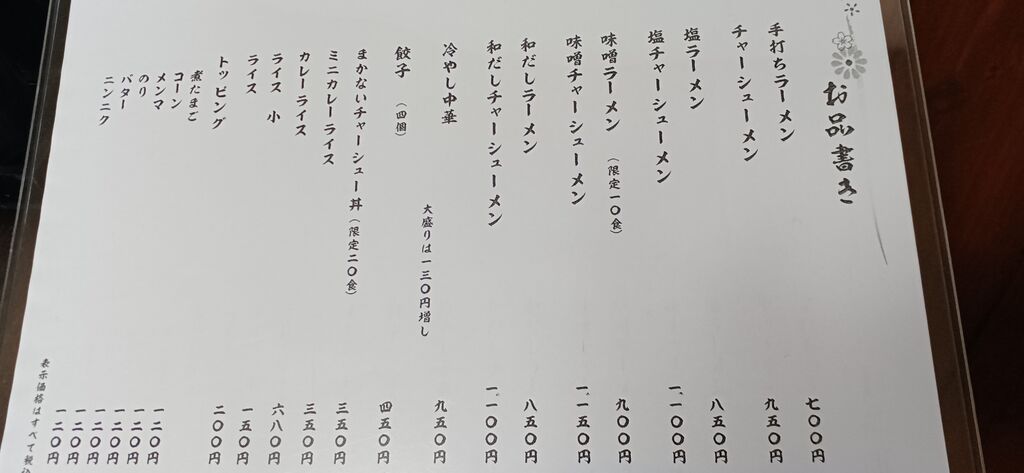 お品書き
手打ちラーメン 七〇〇円
チャーシューメン 九五〇円
塩ラーメン 八五〇円
塩チャーシューメン 一、一〇〇円
味噌ラーメン （限定一〇食） 九〇〇円
味噌チャーシューメン 一、一五〇円
和だしラーメン 八五〇円
和だしチャーシューメン 一、一〇〇円
冷やし中華 九五〇円
大盛りは一三〇円増し
餃子 （四個） 四五〇円
まかないチャーシュー丼（限定二〇食） 三五〇円
ミニカレーライス 三五〇円
カレーライス 六八〇円
ライス 小 一五〇円
ライス 二〇〇円
トッピング
煮たまご 一二〇円
コーン 一二〇円
メンマ 一二〇円
のり 一二〇円
バター 一二〇円
ニンニク 一二〇円
表示価格はすべて税込